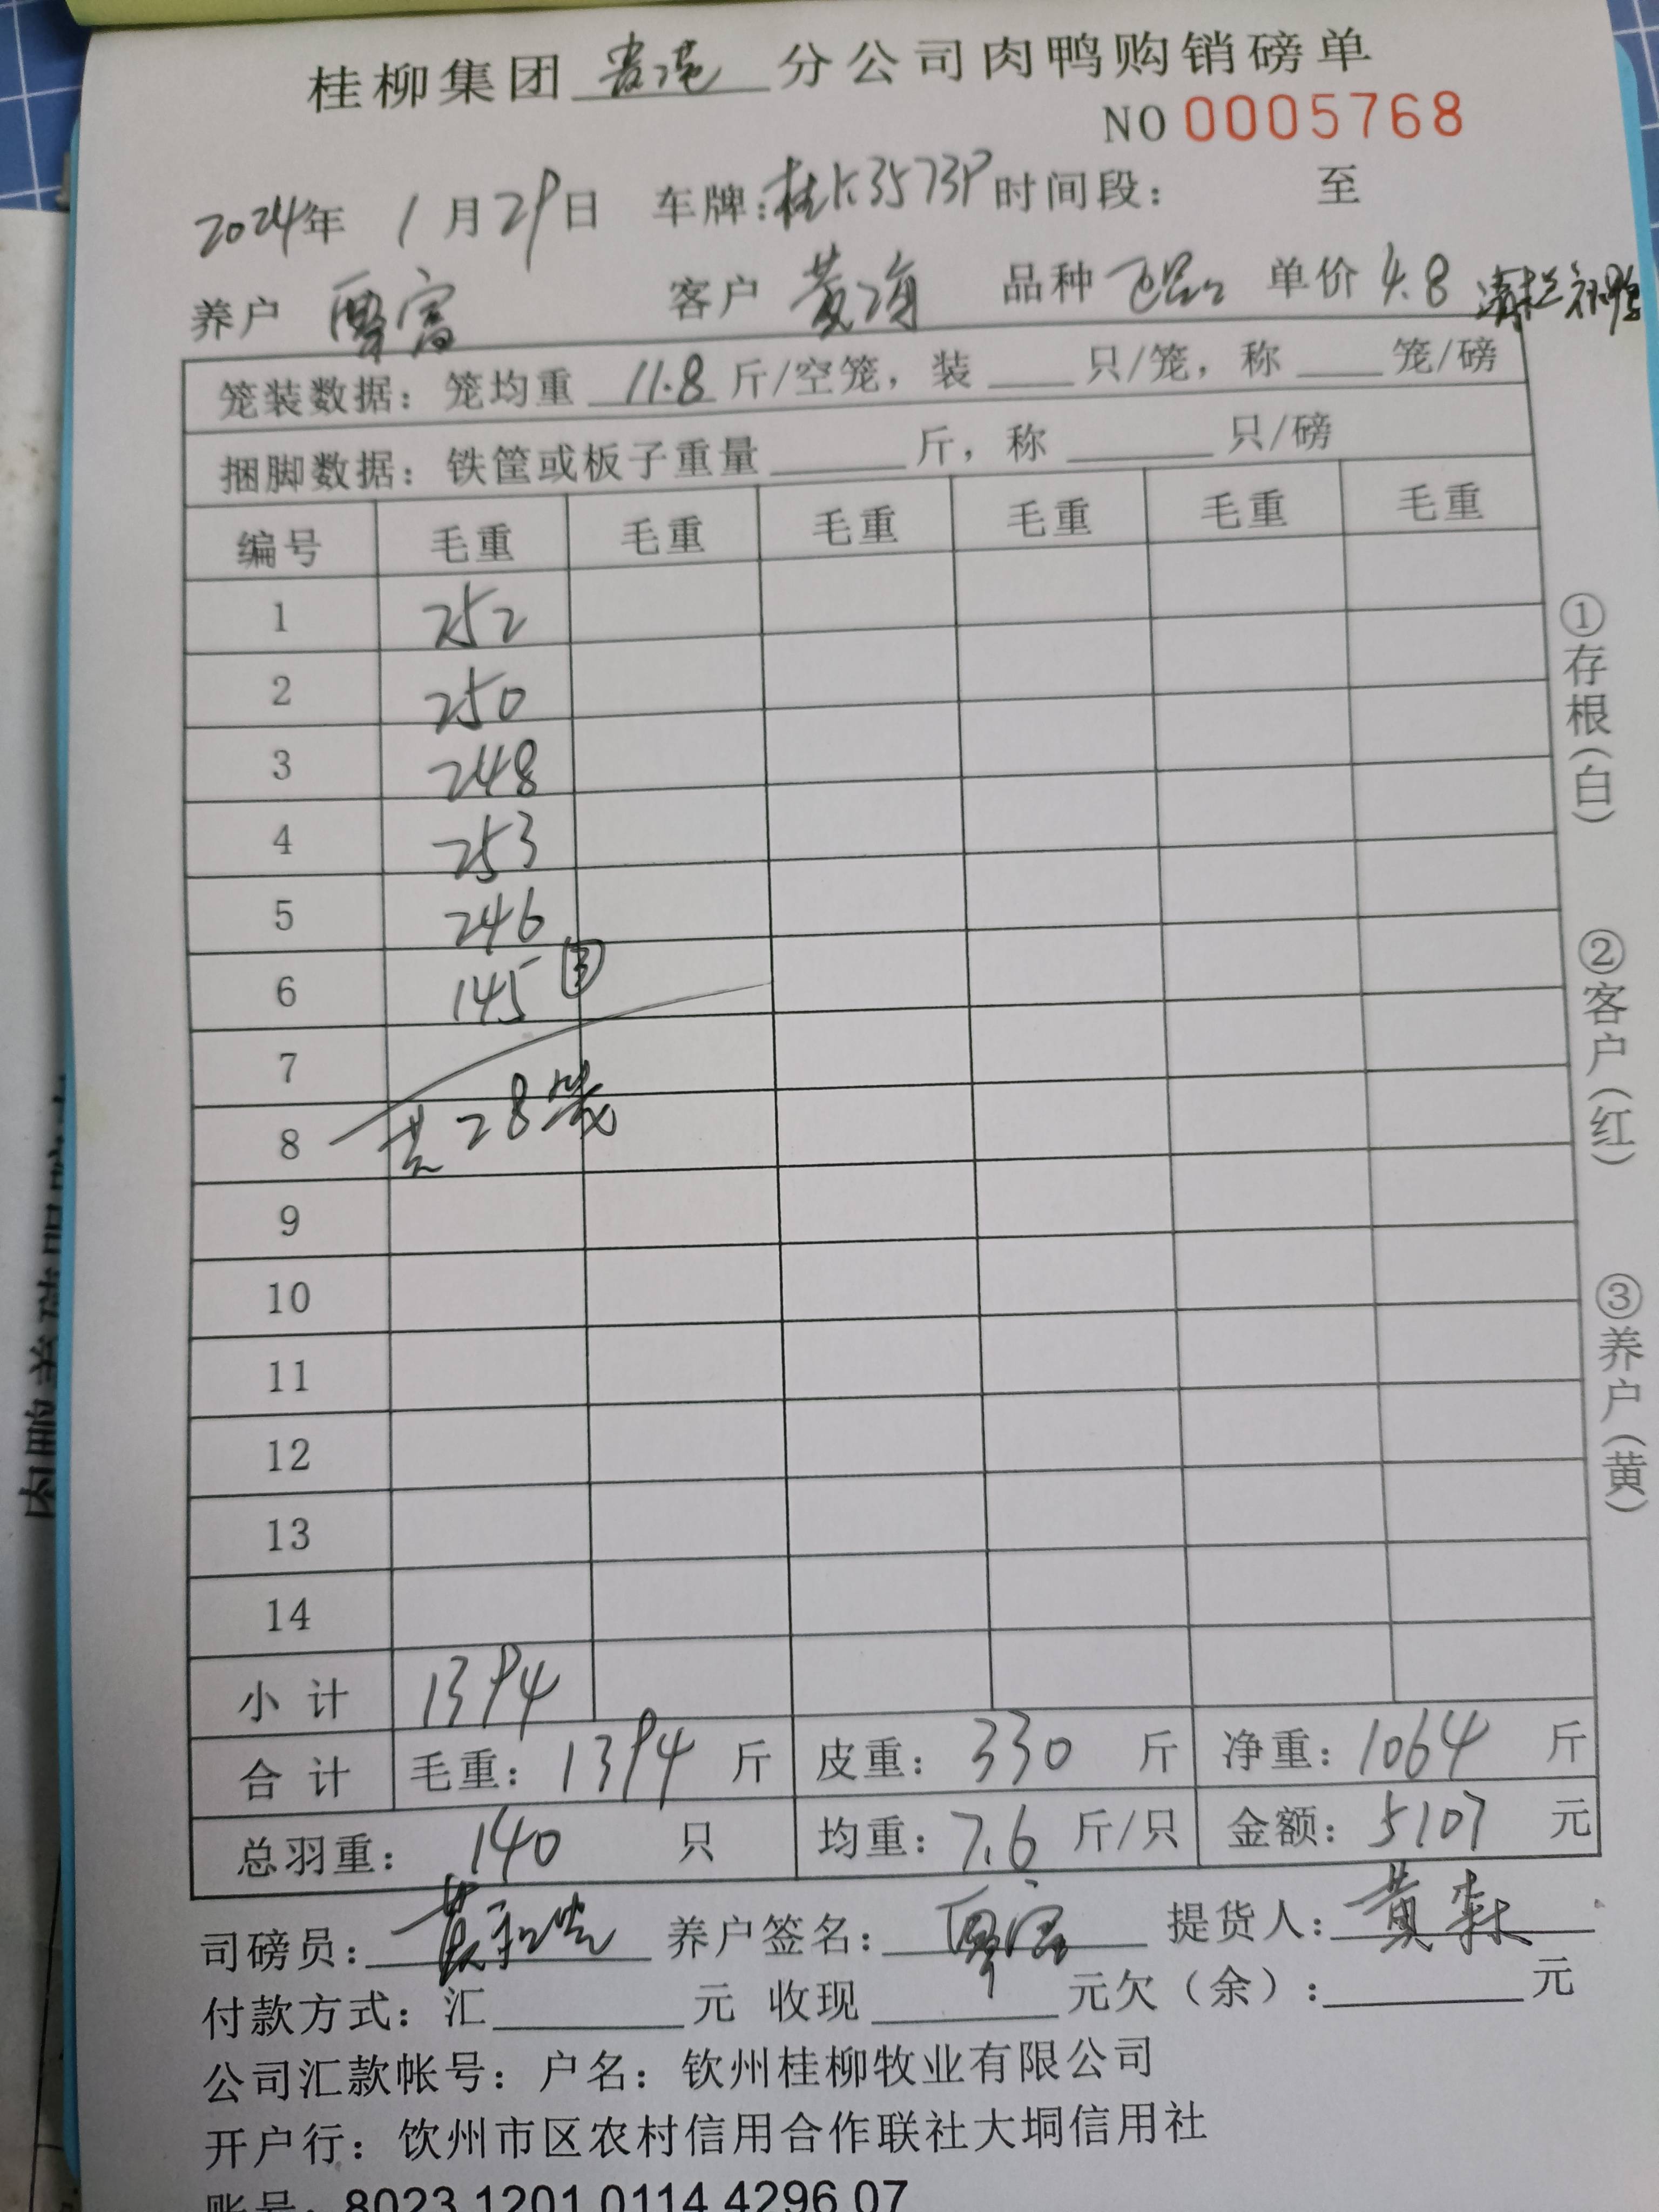 桂柳集团 贵港 分公司肉鸭购销磅单
NO 0005768
2024年 1月29日 车牌:桂K3573P 时间段: 至
养户 客户 黄海 品种 单价 4.8
笼装数据: 笼均重 11.8 斤/空笼, 装 只/笼, 称 笼/磅
捆脚数据: 铁筐或板子重量 斤, 称 只/磅
编号 毛重 毛重 毛重 毛重 毛重 毛重
1 252
2 250
3 248
4 253
5 246
6 145 ③
7
8 共28笼
9
10
11
12
13
14
小计 1394
合计 毛重: 1394 斤 皮重: 330 斤 净重: 1064 斤
总羽重: 140 只 均重: 7.6 斤/只 金额: 5107 元
司磅员: 养户签名: 提货人: 黄森
付款方式: 汇 元 收现 元欠(余): 元
公司汇款帐号: 户名: 钦州桂柳牧业有限公司
开户行: 钦州市区农村信用合作联社大垌信用社
账号: 8023 1201 0114 4296 07
①存根(白)
②客户(红)
③养户(黄)